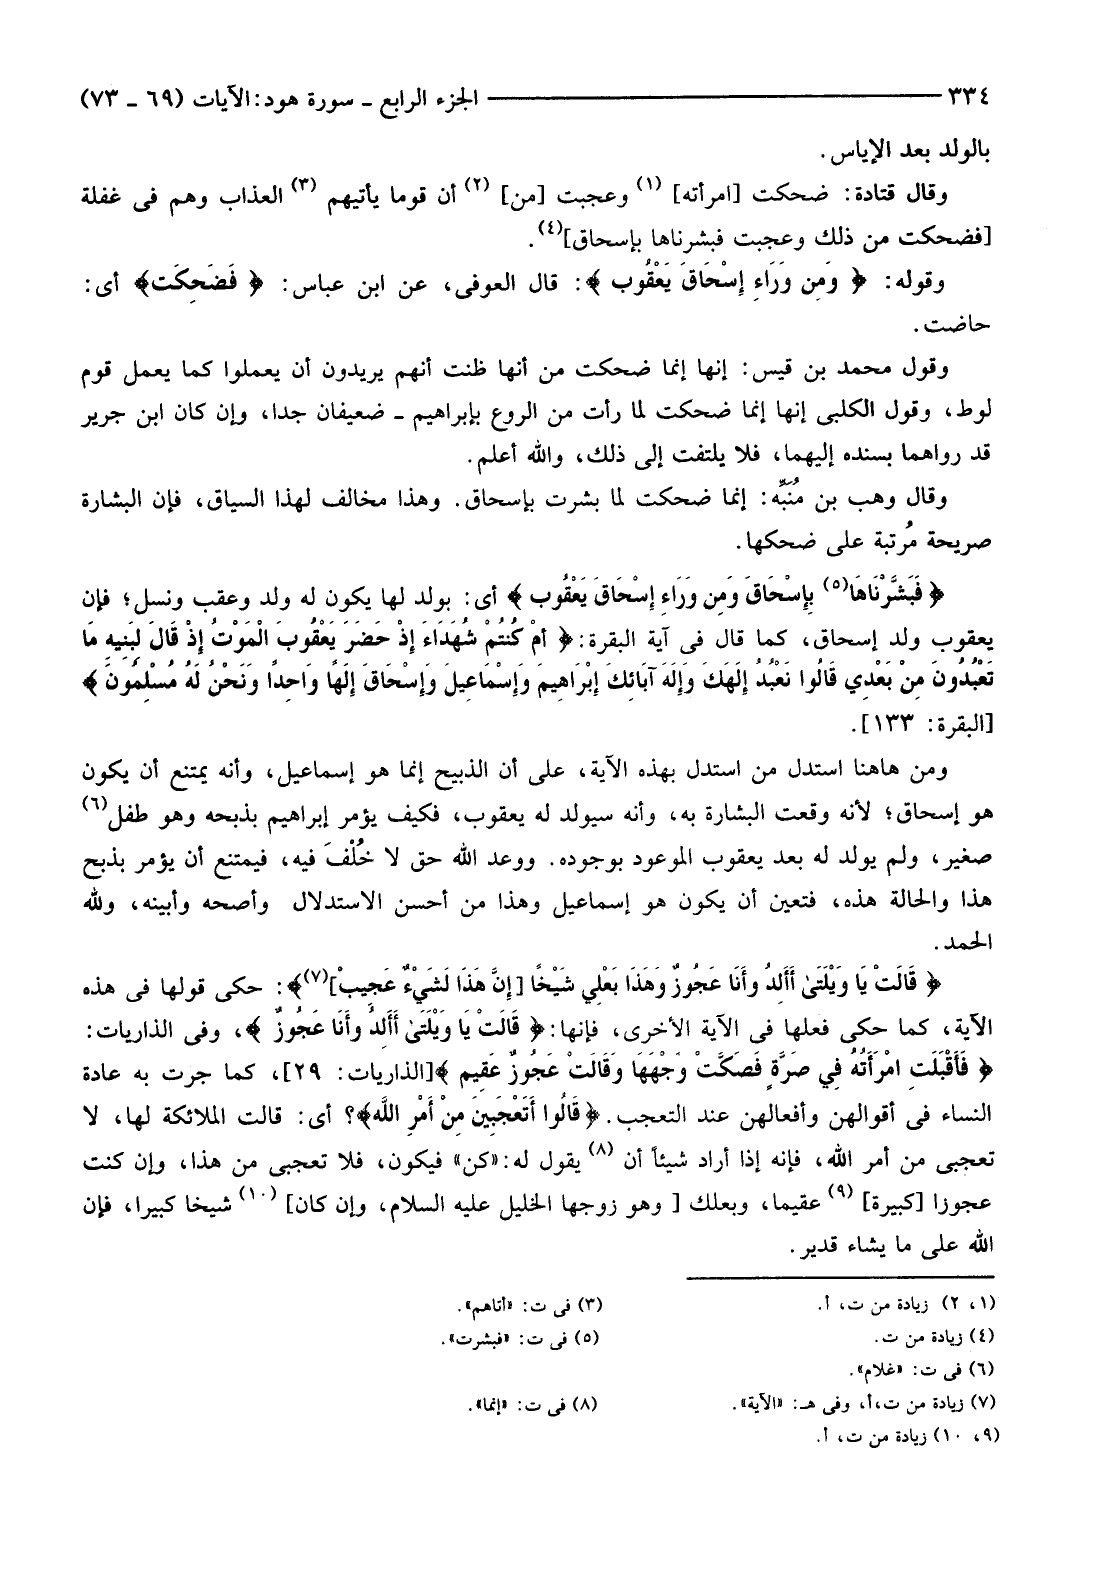 ٣٣٤ ـــــــــــــــــــ الجزء الرابع ـ سورة هود: الآيات (٦٩ ـ ٧٣)
بالولد بعد الإياس.
وقال قتادة: ضحكت [امرأته] (١) وعجبت [من] (٢) أن قوما يأتيهم (٣) العذاب وهم فى غفلة
[فضحكت من ذلك وعجبت فبشرناها بإسحاق](٤).
وقوله: ﴿ وَمِن وَرَاءِ إِسْحَاقَ يَعْقُوب ﴾: قال العوفى، عن ابن عباس: ﴿ فَضَحِكَت﴾ أى:
حاضت.
وقول محمد بن قيس: إنها إنما ضحكت من أنها ظنت أنهم يريدون أن يعملوا كما يعمل قوم
لوط، وقول الكلبى إنها إنما ضحكت لما رأت من الروع بإبراهيم ـ ضعيفان جدا، وإن كان ابن جرير
قد رواهما بسنده إليهما، فلا يلتفت إلى ذلك، والله أعلم.
وقال وهب بن مُنَبِّه: إنما ضحكت لما بشرت بإسحاق. وهذا مخالف لهذا السياق، فإن البشارة
صريحة مُرتبة على ضحكها.
﴿ فَبَشَّرْنَاهَا(٥) بِإِسْحَاقَ وَمِن وَرَاءِ إِسْحَاقَ يَعْقُوب ﴾ أى: بولد لها يكون له ولد وعقب ونسل؛ فإن
يعقوب ولد إسحاق، كما قال فى آية البقرة: ﴿ أَمْ كُنتُمْ شُهَدَاءَ إِذْ حَضَرَ يَعْقُوبَ الْمَوْتُ إِذْ قَالَ لِبَنِيهِ مَا
تَعْبُدُونَ مِنْ بَعْدِي قَالُوا نَعْبُدُ إِلَهَكَ وَإِلَهَ آبَائِكَ إِبْرَاهِيمَ وَإِسْمَاعِيلَ وَإِسْحَاقَ إِلَهًا وَاحِدًا وَنَحْنُ لَهُ مُسْلِمُونَ ﴾
[البقرة: ١٣٣].
ومن هاهنا استدل من استدل بهذه الآية، على أن الذبيح إنما هو إسماعيل، وأنه يمتنع أن يكون
هو إسحاق؛ لأنه وقعت البشارة به، وأنه سيولد له يعقوب، فكيف يؤمر إبراهيم بذبحه وهو طفل(٦)
صغير، ولم يولد له بعد يعقوب الموعود بوجوده. ووعد الله حق لا خُلْفَ فيه، فيمتنع أن يؤمر بذبح
هذا والحالة هذه، فتعين أن يكون هو إسماعيل وهذا من أحسن الاستدلال وأصحه وأبينه، ولله
الحمد.
﴿ قَالَتْ يَا وَيْلَتَىٰ أَأَلِدُ وَأَنَا عَجُوزٌ وَهَذَا بَعْلِي شَيْخًا [إِنَّ هَذَا لَشَيْءٌ عَجِيبٌ](٧)﴾: حكى قولها فى هذه
الآية، كما حكى فعلها فى الآية الأخرى، فإنها: ﴿ قَالَتْ يَا وَيْلَتَىٰ أَأَلِدُ وَأَنَا عَجُوزٌ ﴾، وفى الذاريات:
﴿ فَأَقْبَلَتِ امْرَأَتُهُ فِي صَرَّةٍ فَصَكَّتْ وَجْهَهَا وَقَالَتْ عَجُوزٌ عَقِيم ﴾[الذاريات: ٢٩]، كما جرت به عادة
النساء فى أقوالهن وأفعالهن عند التعجب. ﴿ قَالُوا أَتَعْجَبِينَ مِنْ أَمْرِ اللَّه﴾؟ أى: قالت الملائكة لها، لا
تعجبى من أمر الله، فإنه إذا أراد شيئاً أن (٨) يقول له: «كن» فيكون، فلا تعجبى من هذا، وإن كنت
عجوزا [كبيرة] (٩) عقيما، وبعلك [ وهو زوجها الخليل عليه السلام، وإن كان] (١٠) شيخا كبيرا، فإن
الله على ما يشاء قدير.
(١، ٢) زيادة من ت، أ. (٣) فى ت: «أتاهم».
(٤) زيادة من ت. (٥) فى ت: «فبشرت».
(٦) فى ت: «غلام».
(٧) زيادة من ت،أ، وفى هـ: «الآية». (٨) فى ت: «إنما».
(٩، ١٠) زيادة من ت، أ.